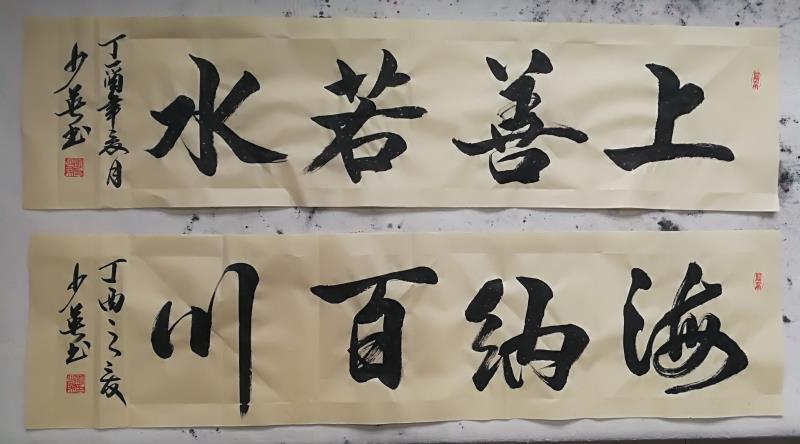 上善若水
丁酉年亥月
少英书
海纳百川
丁酉之夏
少英书